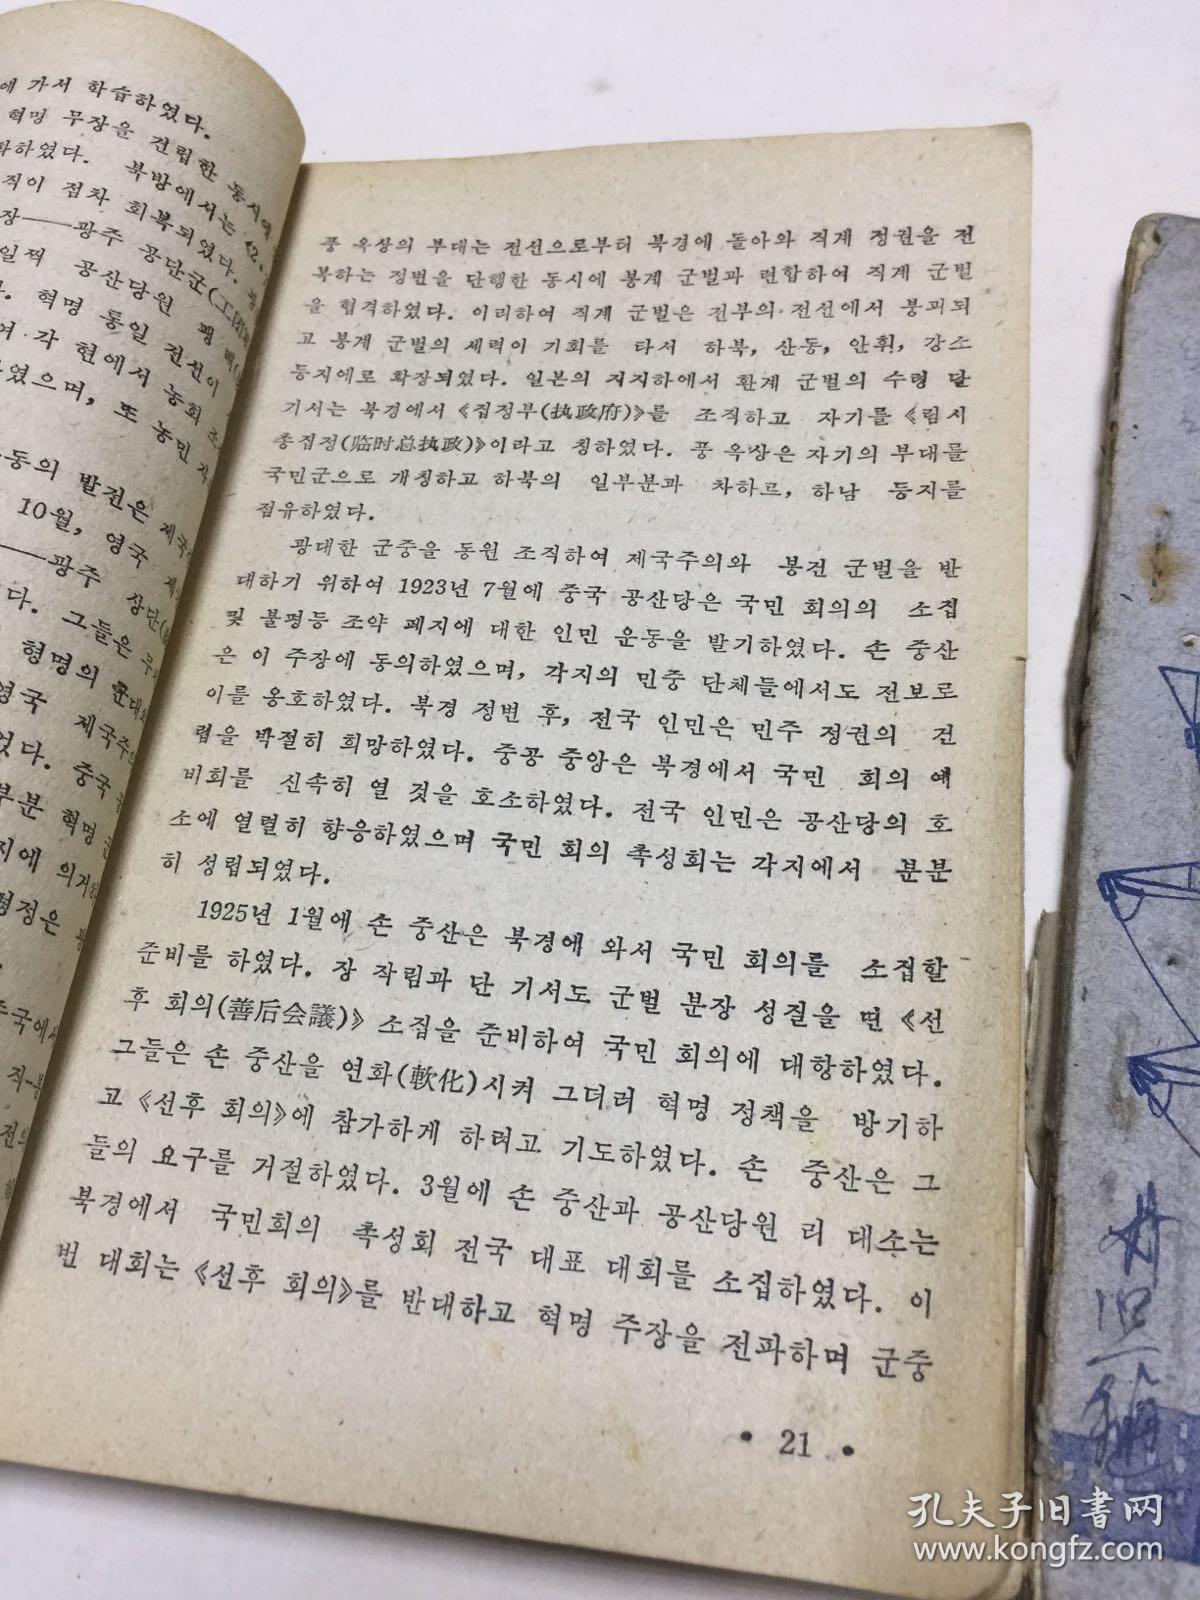 에 가서 학습하였다.
혁명 무장을 건립한 동시에
하였다. 북방에서는
직이 점차 회복되였다.
장——광주 공단군
일찍 공산당원
혁명 통일 전선이
각 현에서 농회
였으며, 또 농민
동의 발전은
10월, 영국
——광주 상단
다. 그들은
형명의 군대와
영국 제국주의
었다. 중국
부분 혁명
지에 의거하
평정은
풍 옥상의 부대는 전선으로부터 북경에 돌아와 직계 정권을 전
복하는 정변을 단행한 동시에 봉계 군벌과 련합하여 직계 군벌
을 협격하였다. 이리하여 직계 군벌은 전부의 전선에서 붕괴되
고 봉계 군벌의 세력이 기회를 타서 하북, 산동, 안휘, 강소
등지에로 확장되였다. 일본의 지지하에서 환계 군벌의 수령 단
기서는 북경에서 《집정부(执政府)》를 조직하고 자기를 《림시
총집정(临时总执政)》이라고 칭하였다. 풍 옥상은 자기의 부대를
국민군으로 개칭하고 하북의 일부분과 차하르, 하남 등지를
점유하였다.
광대한 군중을 동원 조직하여 제국주의와 봉건 군벌을 반
대하기 위하여 1923년 7월에 중국 공산당은 국민 회의의 소집
및 불평등 조약 폐지에 대한 인민 운동을 발기하였다. 손 중산
은 이 주장에 동의하였으며, 각지의 민중 단체들에서도 전보로
이를 옹호하였다. 북경 정변 후, 전국 인민은 민주 정권의 건
립을 박절히 희망하였다. 중공 중앙은 북경에서 국민 회의 예
비회를 신속히 열 것을 호소하였다. 전국 인민은 공산당의 호
소에 열렬히 향응하였으며 국민 회의 촉성회는 각지에서 분분
히 성립되였다.
1925년 1월에 손 중산은 북경에 와서 국민 회의를 소집할
준비를 하였다. 장 작림과 단 기서도 군벌 분장 성질을 띤 《선
후 회의(善后会議)》 소집을 준비하여 국민 회의에 대항하였다.
그들은 손 중산을 연화(軟化)시켜 그더러 혁명 정책을 방기하
고 《선후 회의》에 참가하게 하려고 기도하였다. 손 중산은 그
들의 요구를 거절하였다. 3월에 손 중산과 공산당원 리 대소는
북경에서 국민회의 촉성회 전국 대표 대회를 소집하였다. 이
번 대회는 《선후 회의》를 반대하고 혁명 주장을 전파하며 군중
• 21 •
孔夫子旧书网
www.kongfz.com